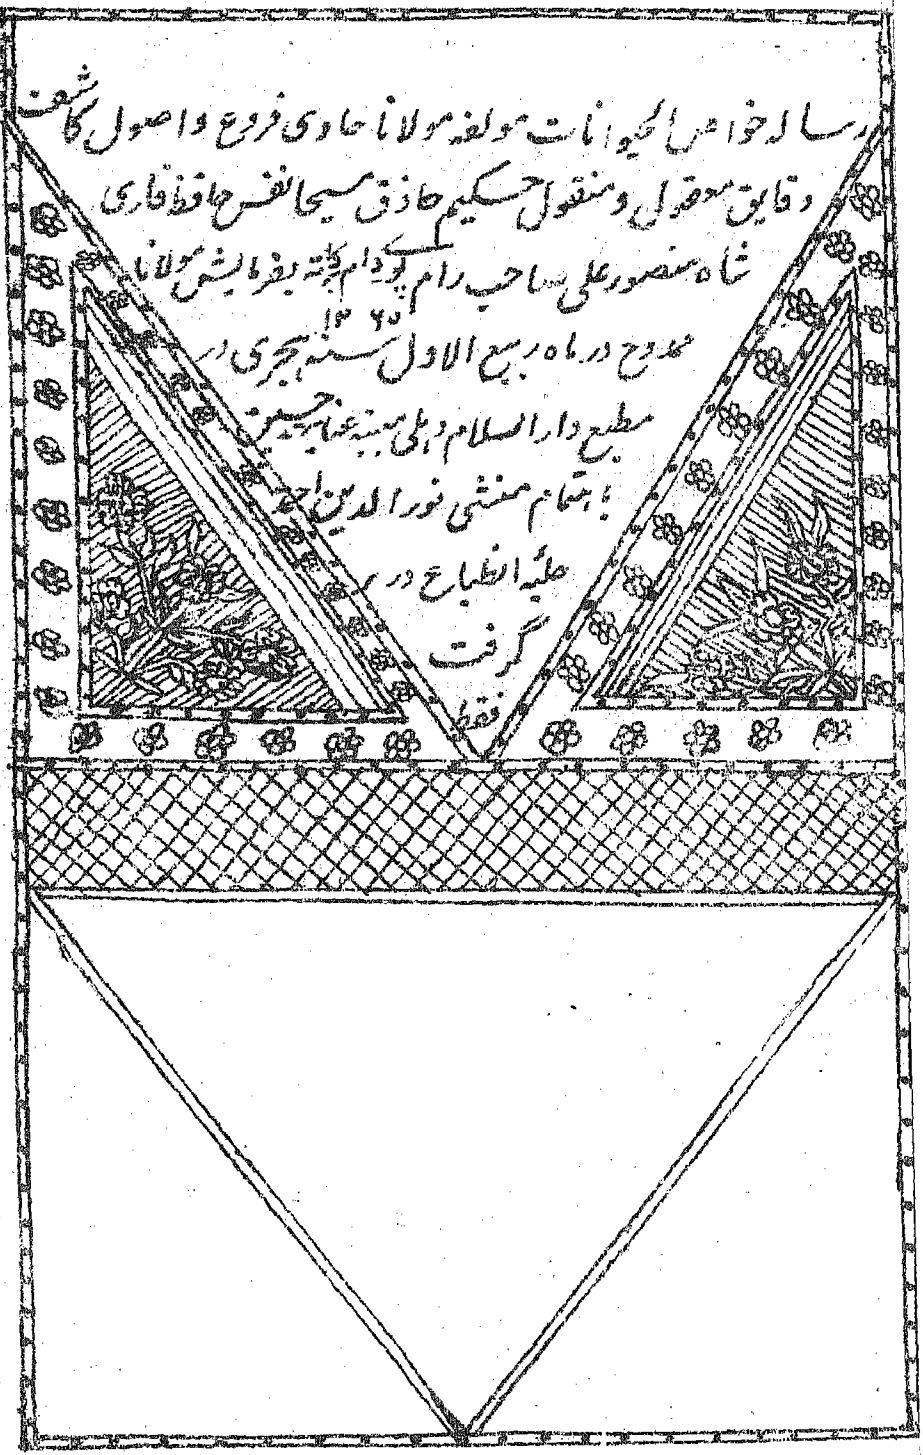 رساله خواص الحیوانات مولفه مولانا حاوی فروع و اصول کاشف
دقایق معقول و منقول حکیم حاذق مسیحا نفس حافظ قاری
شاه منصور علی صاحب رام پوری دام برکاته بفرمایش مولانا
ممدوح در ماه ربیع الاول سنه ۱۲۶۵ هجری در
مطبع دار السلام دهلی حسین
باهتمام منشی نور الدین احمد
حلیه انطباع در بر
گرفت
فقط